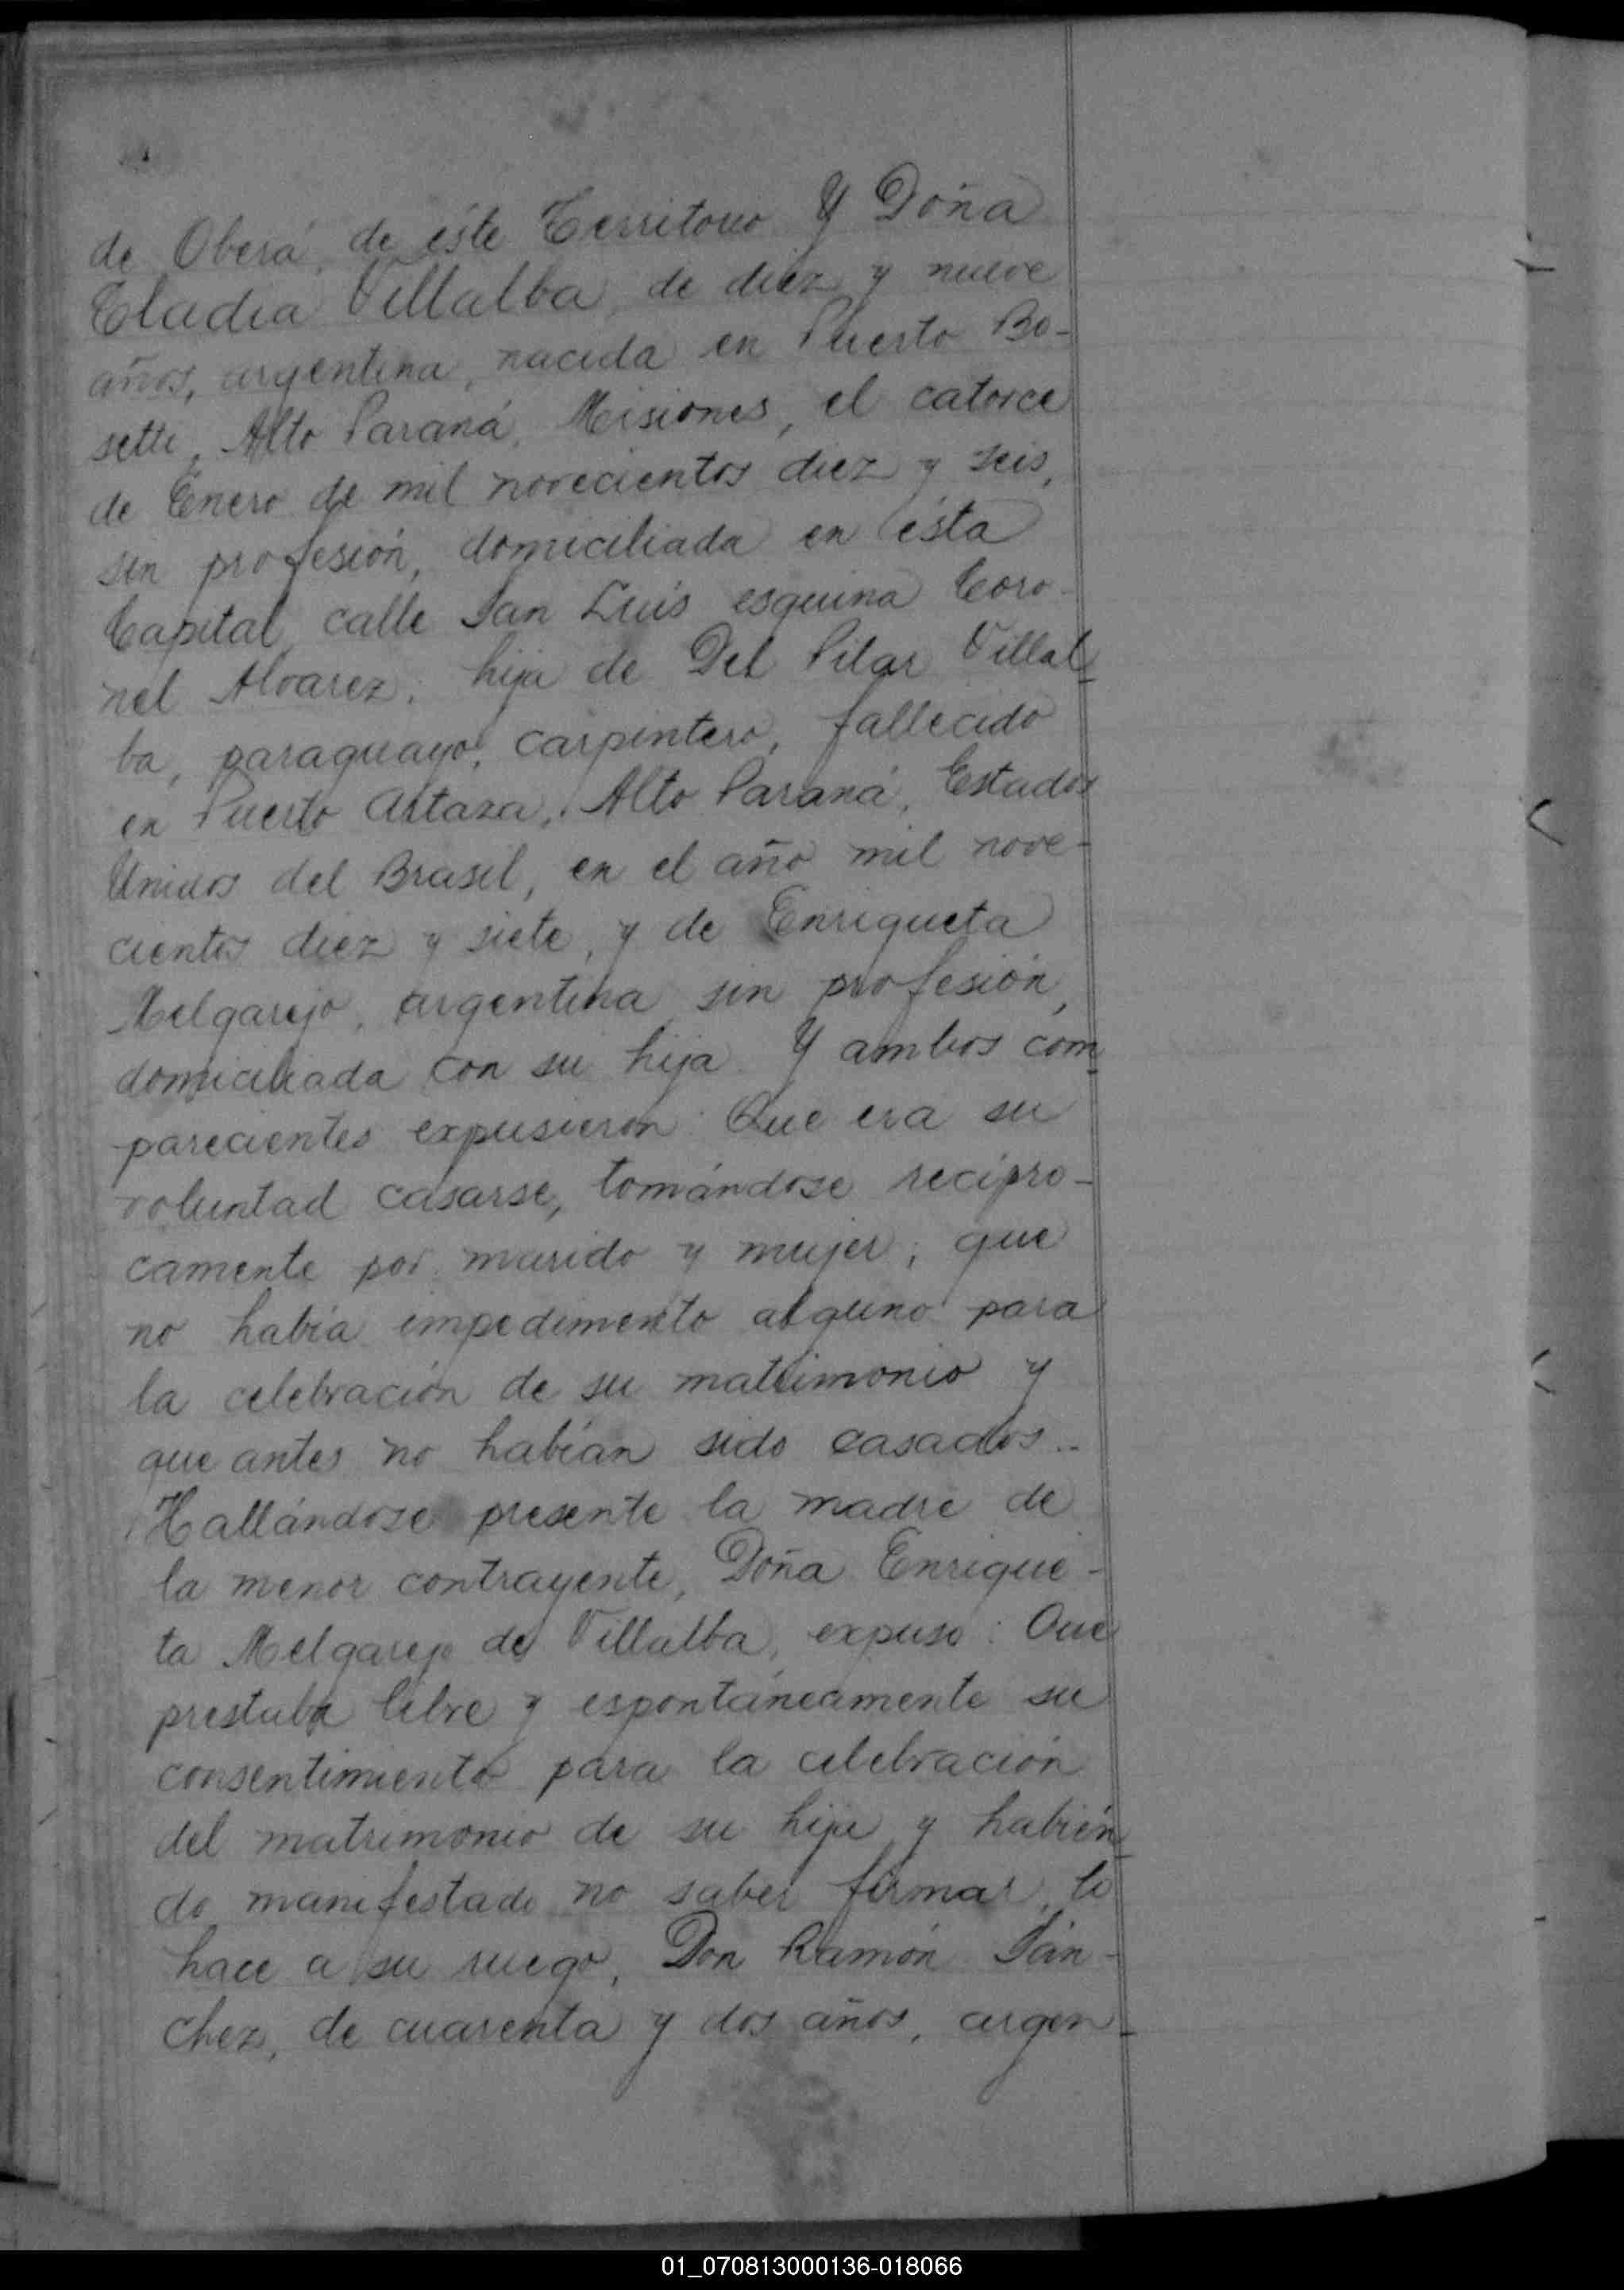 de Oberá, de éste Territorio Y Doña
Eladia Villalba, de diez y nueve
años, argentina, nacida en Puerto Bo-
setti, Alto Paraná, Misiones, el catorce
de Enero de mil novecientos diez y seis,
sin profesión, domiciliada en ésta
Capital, calle San Luis esquina Coro-
nel Alvarez; hija de Del Pilar Villal-
ba, paraguayo, carpintero, fallecido
en Puerto Artaza, Alto Paraná, Estados
Unidos del Brasil, en el año mil nove-
cientos diez y siete, y de Enriqueta
Melgarejo, argentina, sin profesión,
domiciliada con su hija. Y ambos com-
parecientes expusieron: Que era su
voluntad casarse, tomándose recipro-
camente por marido y mujer; que
no había impedimento alguno para
la celebración de su matrimonio y
que antes no habían sido casados..
Hallándose presente la madre de
la menor contrayente, Doña Enrique-
ta Melgarejo de Villalba, expuso: Que
prestaba libre y espontáneamente su
consentimiento para la celebración
del matrimonio de su hija y habién-
do manifestado no saber firmar, lo
hace a su ruego, Don Ramón Sán-
chez, de cuarenta y dos años, argen-
01_070813000136-018066